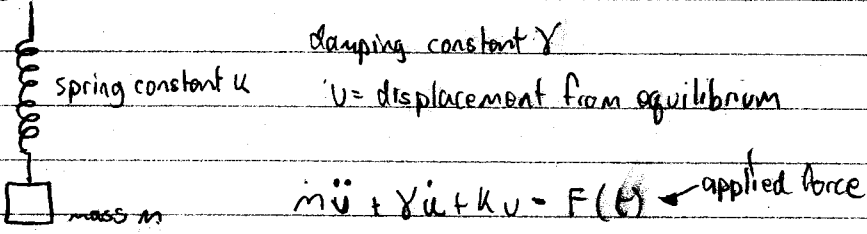 damping constant γ
spring constant k
u = displacement from equilibrium
mü + γu̇ + ku = F(t) ← applied force
mass m